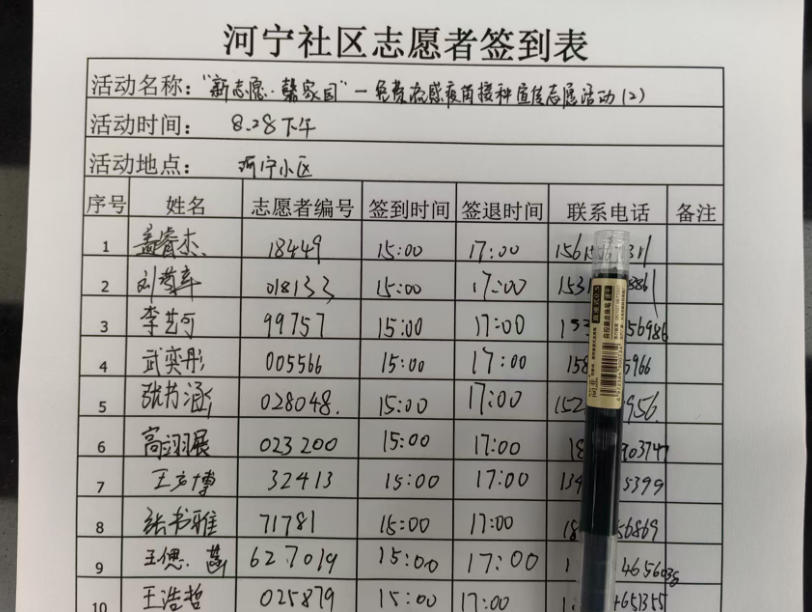 河宁社区志愿者签到表
活动名称："新志愿·馨家园"—免费流感疫苗接种宣传志愿活动(2)
活动时间： 8.28下午
活动地点： 河宁小区
序号 姓名 志愿者编号 签到时间 签退时间 联系电话 备注
1 孟睿杰 18449 15:00 17:00 1561
2 刘 018133 15:00 17:00 1531 8861
3 李艺可 99757 15:00 17:00 56986
4 武奕彤 005566 15:00 17:00 158 5966
5 张芍涵 028048. 15:00 17:00 152 956
6 高翊展 023200 15:00 17:00 18 903747
7 王方博 32413 15:00 17:00 134 5399
8 张书雅 71781 15:00 17:00 18 56869
9 王偲菡 627019 15:00 17:00 1 465603
10 王浩哲 025879 15:00 17:00 1 4651355